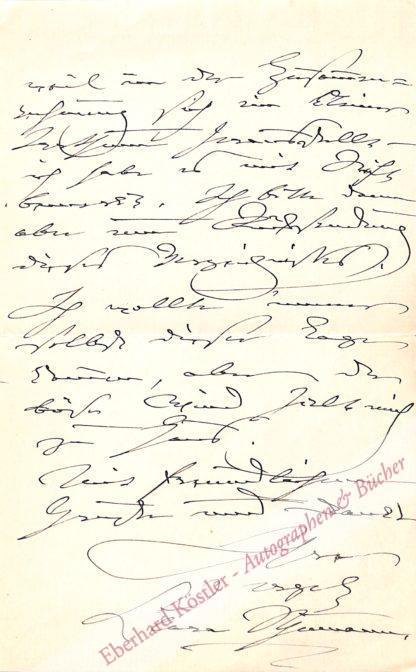 weil in der Zusammen=
rechnung sich ein kleiner
Irrthum herausstellte –
ich habe es mit Bleistift
bemerkt. Ich bitte dann
aber um Rücksendung
dieses Verzeichnisses.
Ich wollte immer
selbst dieser Tage
kommen, aber der
böse Wind hält mich
zu Haus.
Mit freundlichem
Gruße und Dank
Ihre
ergeb.
Clara Schumann.
Eberhard Köstler - Autographen & Bücher